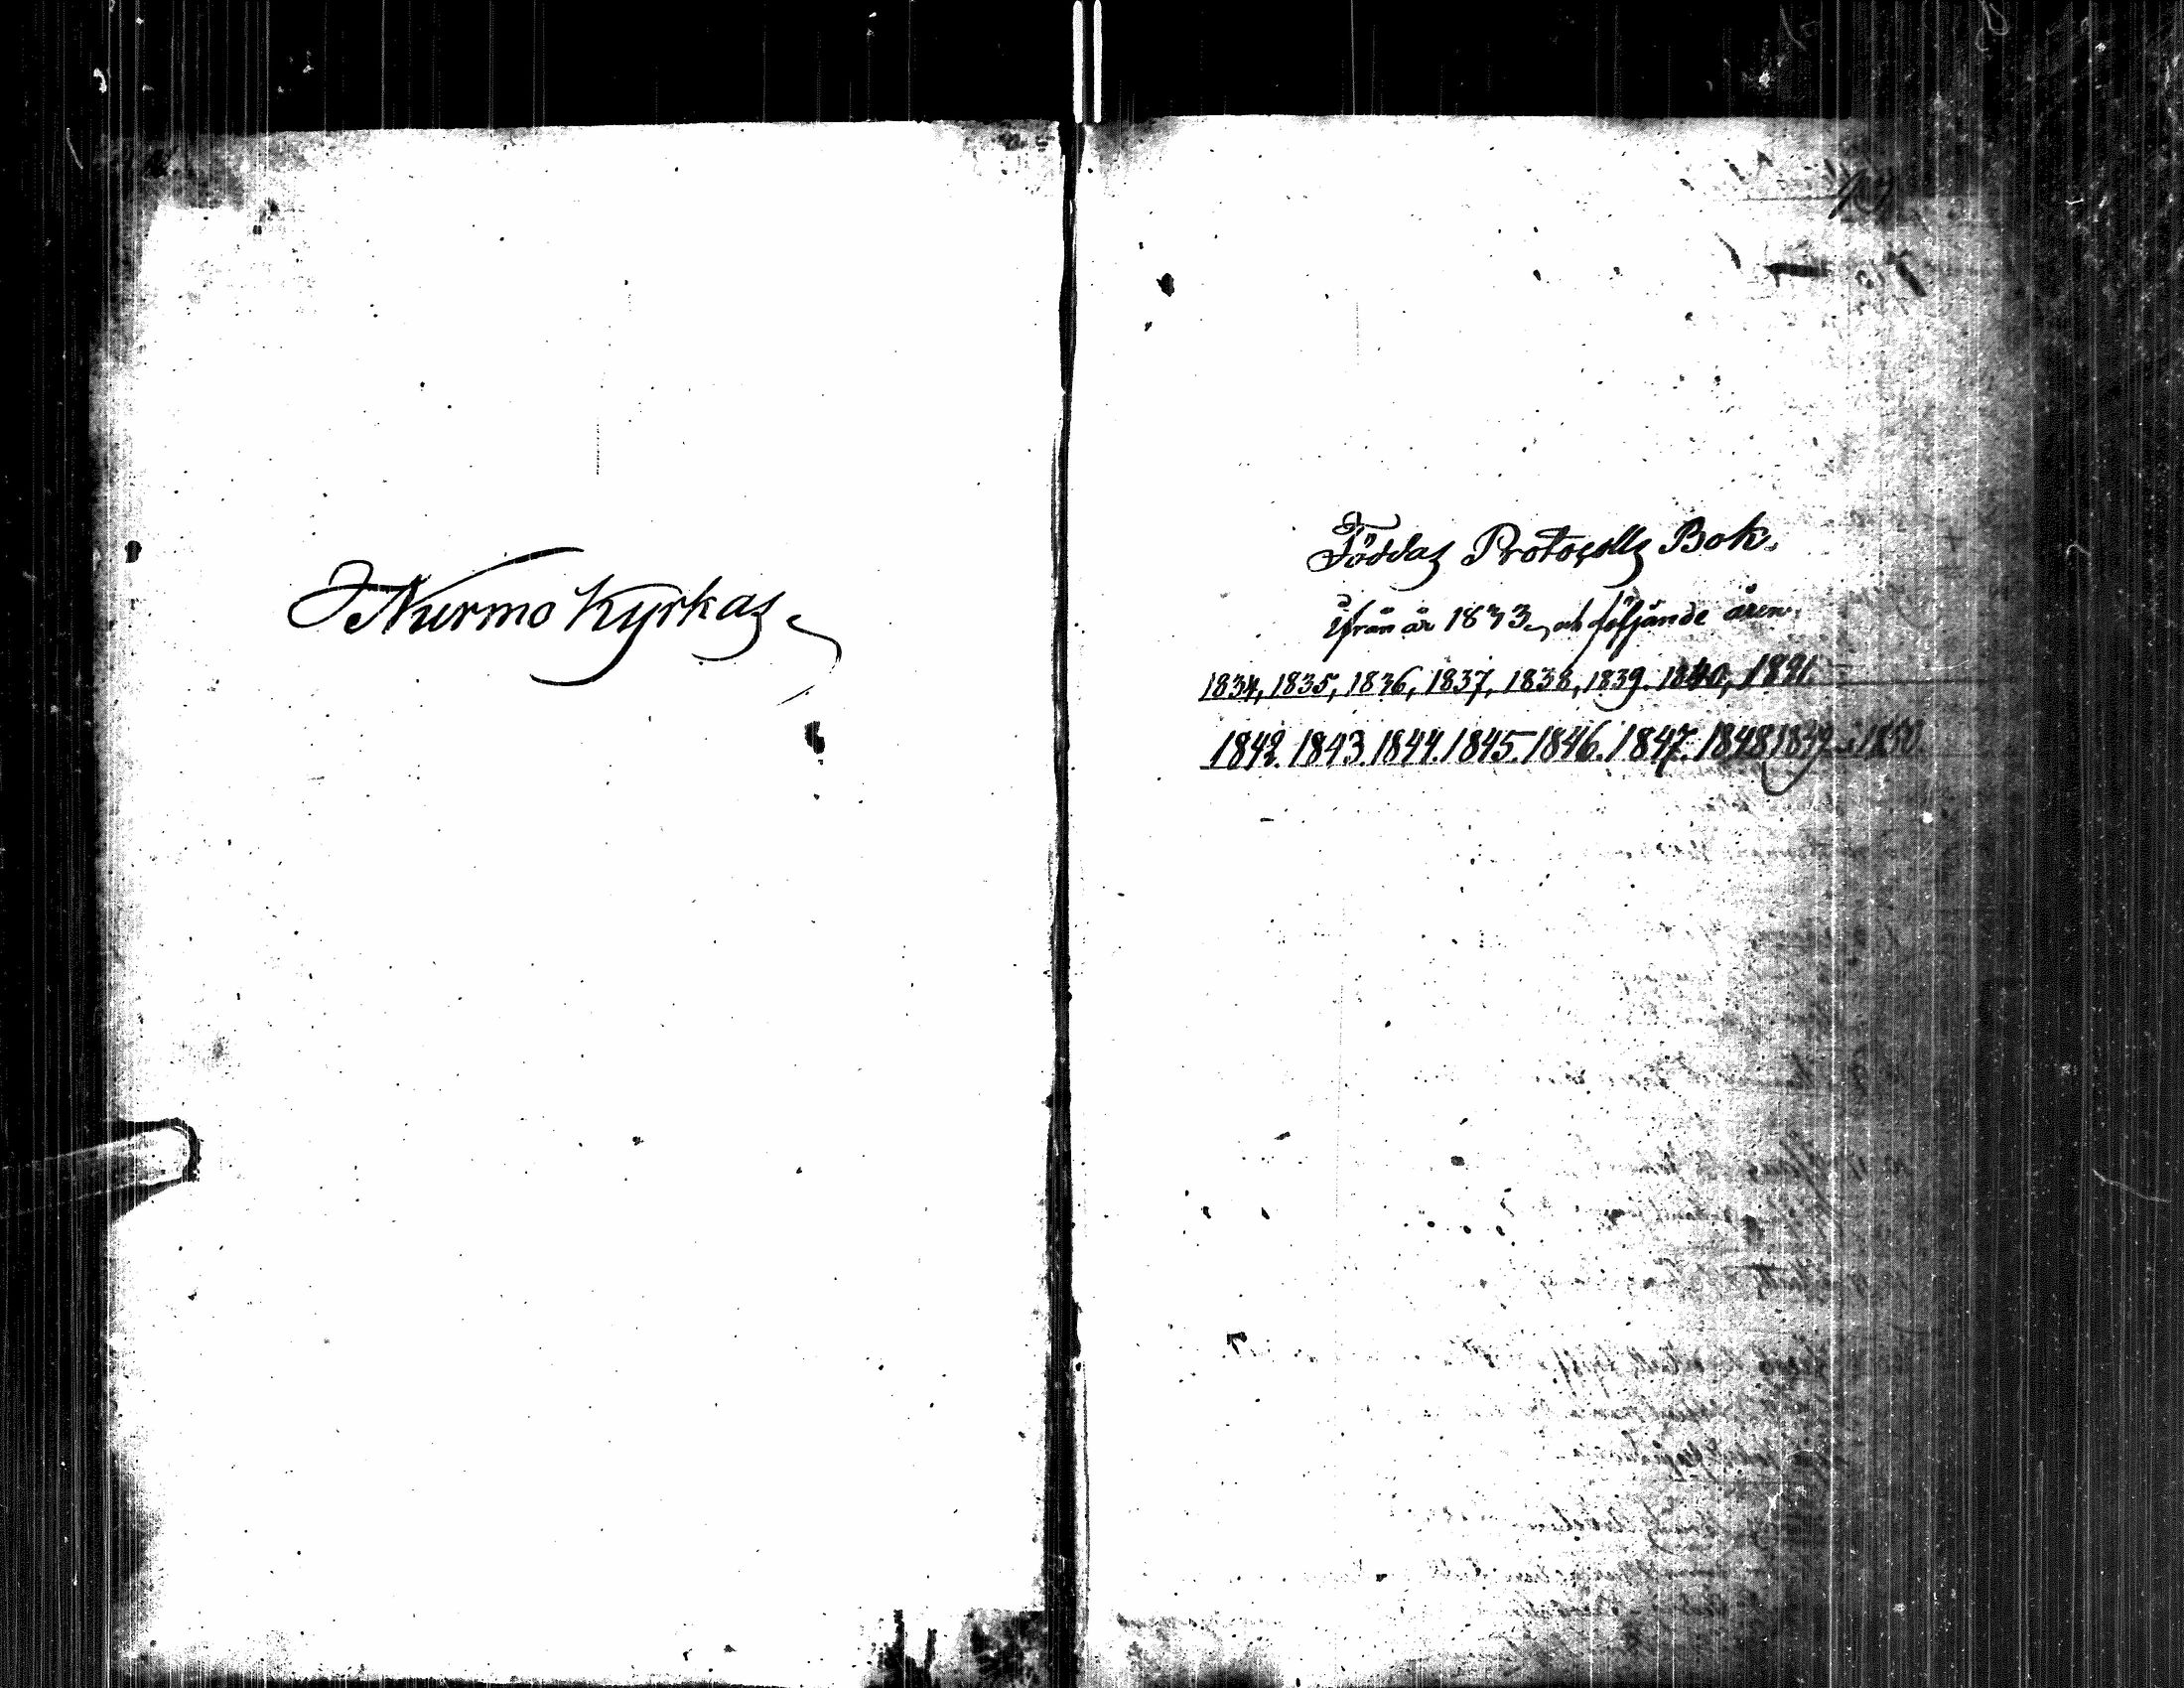 Nurmo Kyrkas
Föddas Protocolls Bok.
ifrån år 1833 och följande åren
1834, 1835, 1836, 1837, 1838, 1839. 1840, 1841.
1842. 1843. 1844. 1845. 1846. 1847. 1848 1849 1850